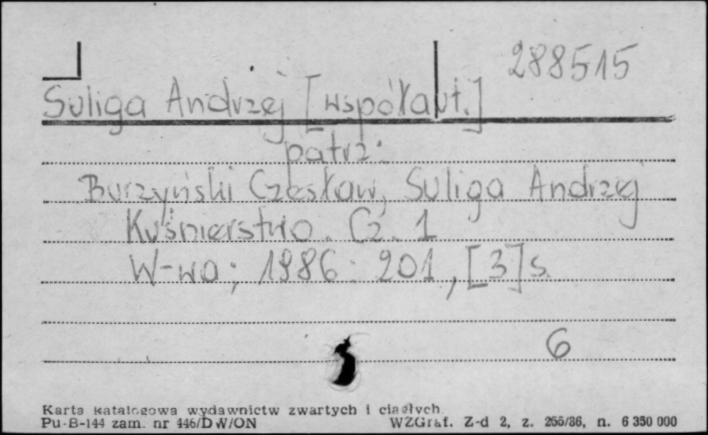 288515
Suliga Andrzej [współaut.]
patrz:
Burzyński Czesław, Suliga Andrzej
Kuśnierstwo. Cz. 1
W-wa; 1986. 201, [3] s.
6
Karta katalogowa wydawnictw zwartych i ciągłych
Pu-B-144 zam. nr 446/DW/ON WZGraf. Z-d 2, z. 255/86, n. 6 350 000